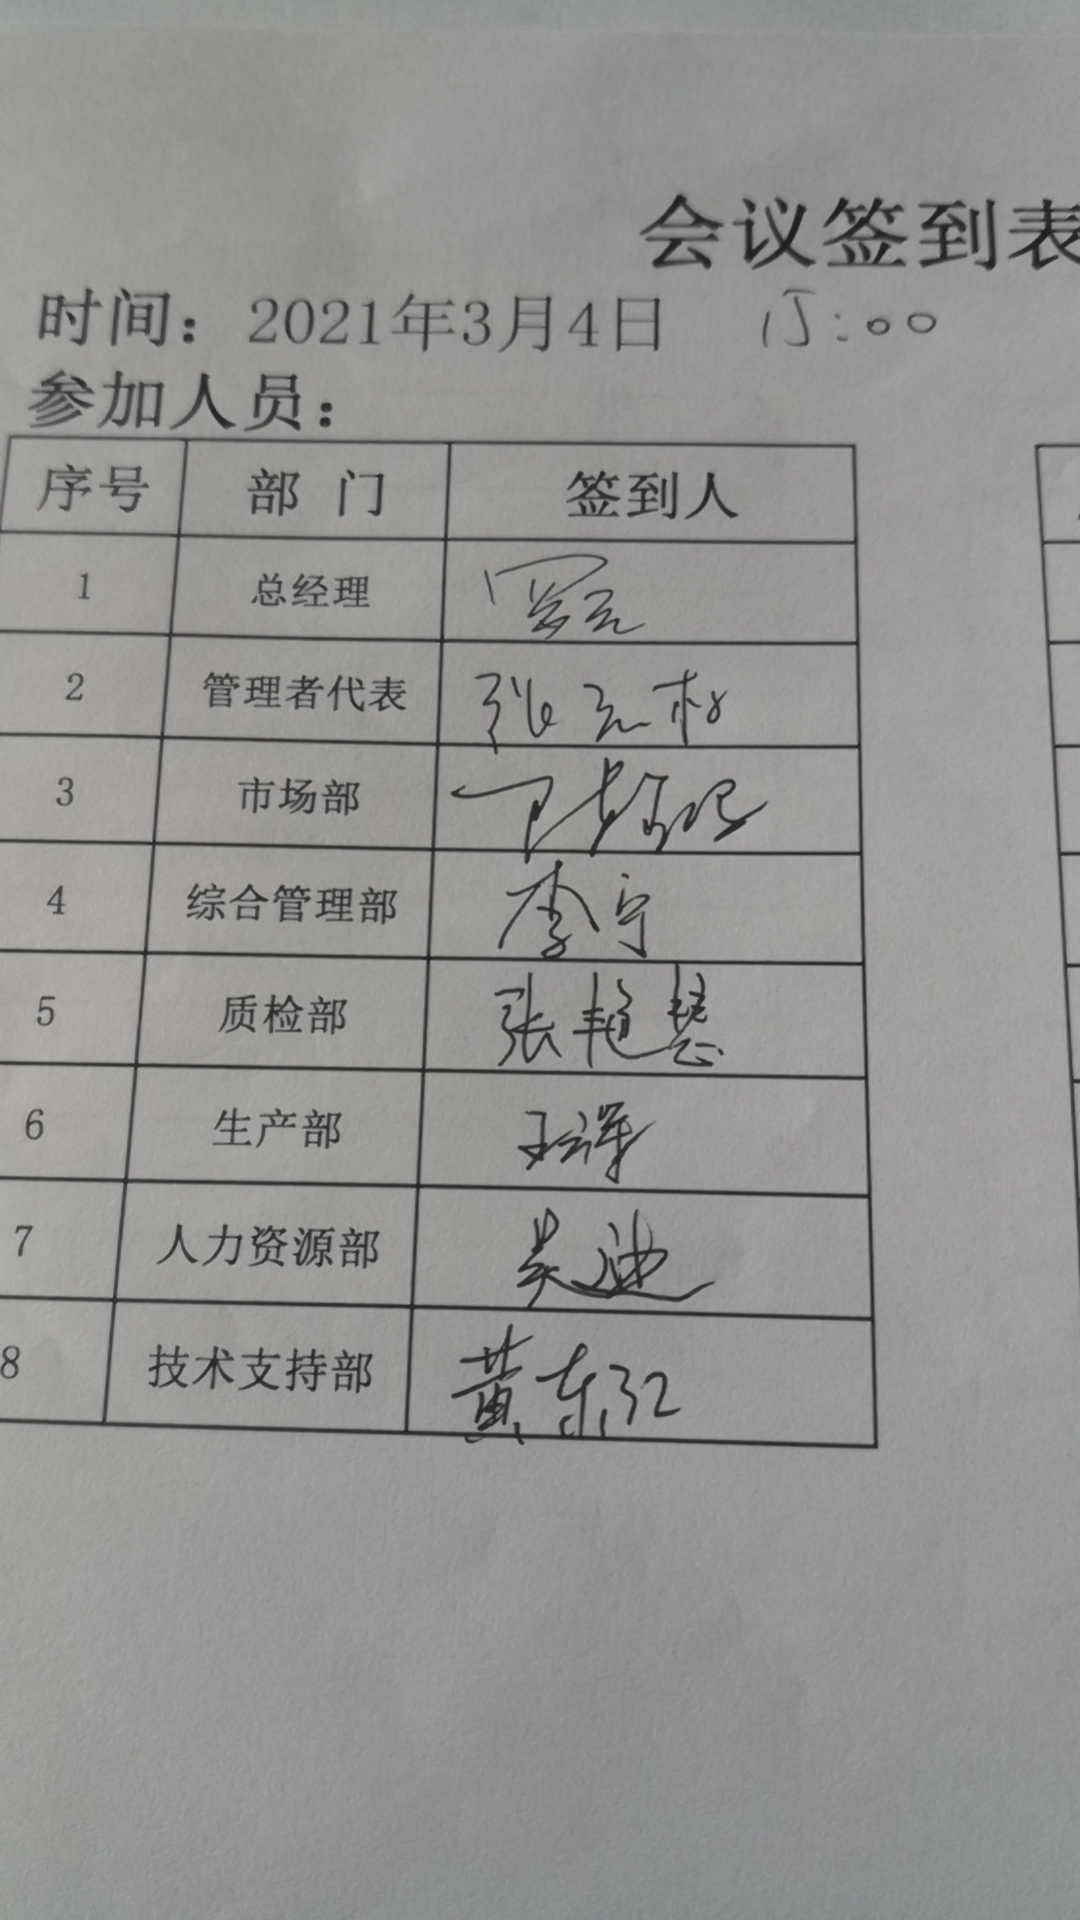 会议签到表
时间：2021年3月4日 15:00
参加人员：
序号 部 门 签到人
1 总经理
2 管理者代表 张
3 市场部
4 综合管理部 李宁
5 质检部 张艳慧
6 生产部 王
7 人力资源部 吴迪
8 技术支持部 黄东江